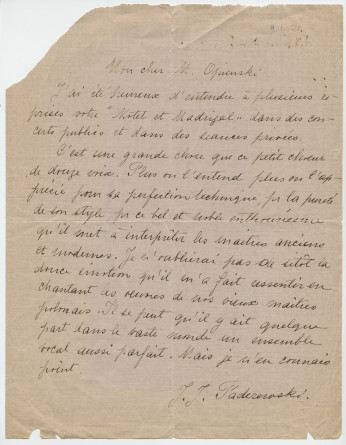 Mon cher M. Opienski
J'ai été heureux d'entendre à plusieurs re-
prises votre "Motet et Madrigal" dans des con-
certs publics et dans des séances privées.
C'est une grande chose que ce petit choeur
de douze voix. Plus on l'entend plus on l'ap-
précie pour sa perfection technique, pr la pureté
de son style pr ce bel et noble enthousiasme
qu'il met à interpréter les maîtres anciens
et modernes. Je n'oublierai pas de sitôt la
douce émotion qu'il m'a fait ressentir en
chantant les oeuvres de nos vieux maîtres
polonais. Il se peut qu'il y ait quelque
part dans le vaste monde un ensemble
vocal aussi parfait. Mais je n'en connais
point.
J. J. Paderewski.